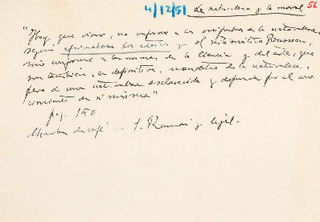 4/12/51 La naturaleza y la moral 56
"Hay que vivir, no conforme a los de la naturaleza,
según los y el Rousseau,
sino conforme a las normas de la ciencia y del arte, que
son también, en definitiva, mandatos de la naturaleza,
pero de una naturaleza esclarecida y depurada por el cono
cimiento de sí misma"
pag. 180
Charlas de café S. Ramón y Cajal.